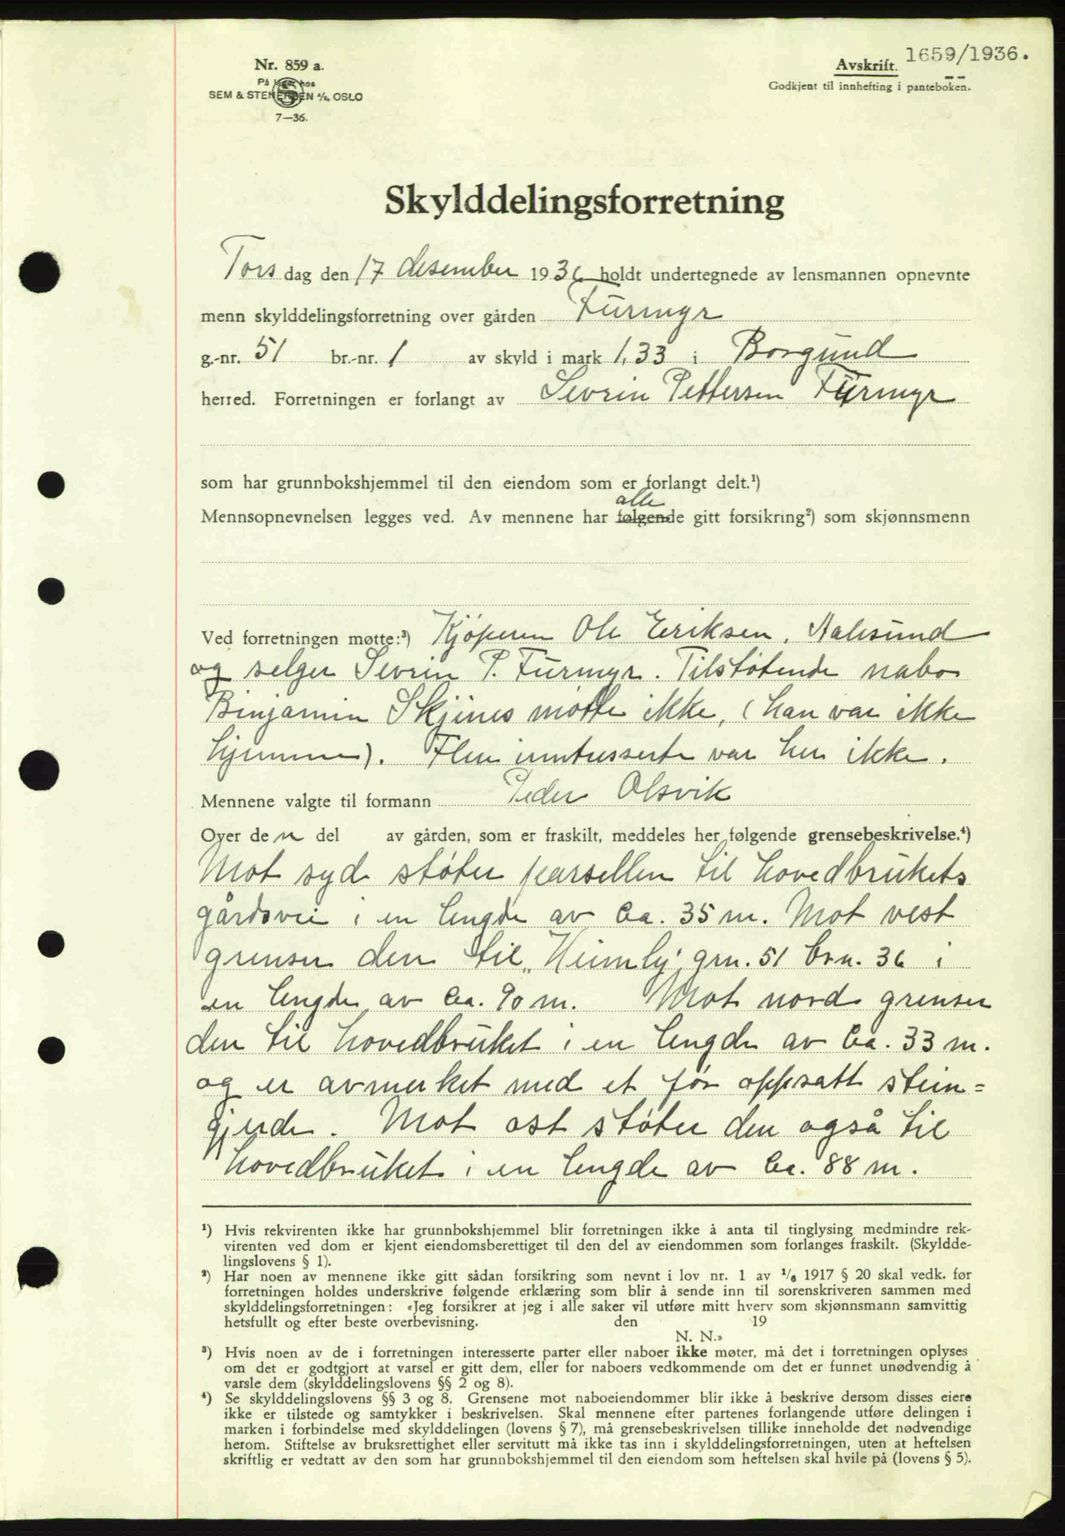 Nr. 859 a.
På lager hos
SEM & STENERSEN A/S. OSLO
7—36.
Avskrift. 1659/1936.
Godkjent til innhefting i panteboken.
Skylddelingsforretning
Tors dag den 17 desember 1936 holdt undertegnede av lensmannen opnevnte
menn skylddelingsforretning over gården Furmyr
g.-nr. 51 br.-nr. 1 av skyld i mark 1,33 i Borgund
herred. Forretningen er forlangt av Sevrin Pettersen Furmyr
som har grunnbokshjemmel til den eiendom som er forlangt delt.¹)
alle
Mennsopnevnelsen legges ved. Av mennene har følgende gitt forsikring²) som skjønnsmenn
Ved forretningen møtte:³) Kjøperen Ole Eriksen, Aalesund
og selger Sevrin P. Furmyr. Tilstøtende nabo
Binjamin Skjines møtte ikke, (han var ikke
hjemme). Flere inntresserte var her ikke.
Mennene valgte til formann Peder Olsvik
Over den del av gården, som er fraskilt, meddeles her følgende grensebeskrivelse.⁴)
Mot syd støter parsellen til hovedbrukets
gårdsvei i en lengde av ca. 35 m. Mot vest
grenser den til „Heimly" grn. 51 brn. 36 i
en lengde av ca. 90 m. Mot nord grenser
den til hovedbruket i en lengde av ca. 33 m.
og er avmerket med et før oppsatt stein=
gjerde. Mot ost støter den også til
hovedbruket i en lengde av ca. 88 m.
¹) Hvis rekvirenten ikke har grunnbokshjemmel blir forretningen ikke å anta til tinglysing medmindre rek-
virenten ved dom er kjent eiendomsberettiget til den del av eiendommen som forlanges fraskilt. (Skyldde-
lingslovens § 1).
²) Har noen av mennene ikke gitt sådan forsikring som nevnt i lov nr. 1 av 1/6 1917 § 20 skal vedk. før
forretningen holdes underskrive følgende erklæring som blir å sende inn til sorenskriveren sammen med
skylddelingsforretningen: «Jeg forsikrer at jeg i alle saker vil utføre mitt hverv som skjønnsmann samvittig
hetsfullt og efter beste overbevisning. den 19
N. N.»
³) Hvis noen av de i forretningen interesserte parter eller naboer ikke møter, må det i forretningen oplyses
om det er godtgjort at varsel er gitt dem, eller for naboers vedkommende om det er funnet unødvendig å
varsle dem (skylddelingslovens §§ 2 og 8).
⁴) Se skylddelingslovens §§ 3 og 8. Grensene mot naboeiendommer blir ikke å beskrive dersom disses eiere
ikke er tilstede og samtykker i beskrivelsen. Skal mennene efter partenes forlangende utføre delingen i
marken i forbindelse med skylddelingen (lovens § 7), må grensebeskrivelsen tillike inneholde det nødvendige
herom. Stiftelse av bruksrettighet eller servitutt må ikke tas inn i skylddelingsforretningen, uten at heftelsen
skriftlig er vedtatt av den som har grunnbokshjemmel til den eiendom som heftelsen skal hvile på (lovens § 5).